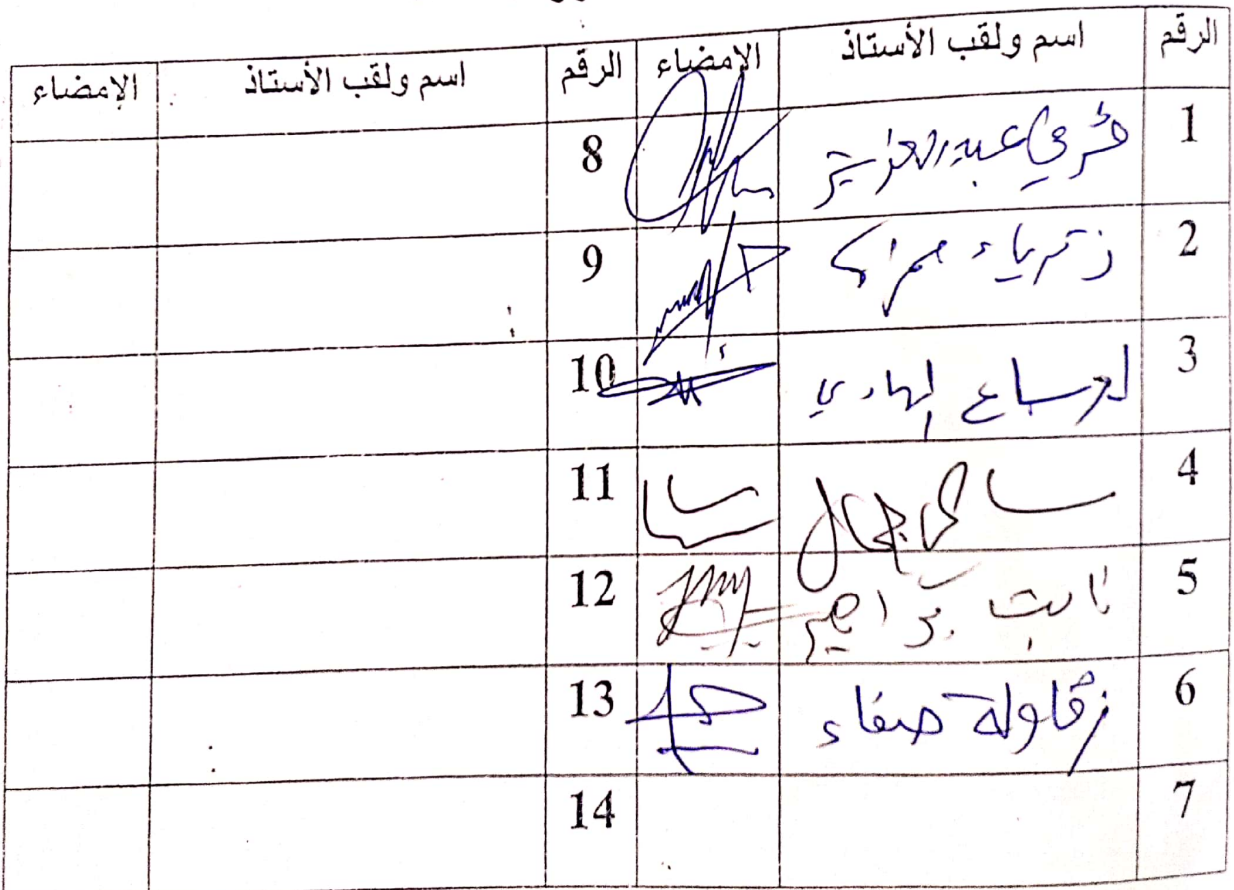 الرقم اسم ولقب الأستاذ الإمضاء الرقم اسم ولقب الأستاذ الإمضاء
1 عبد العزيز 8
2 زكرياء 9
3 الهادي 10
4 جمال 11
5 نايت 12
6 زقاولة صفاء 13
7 14